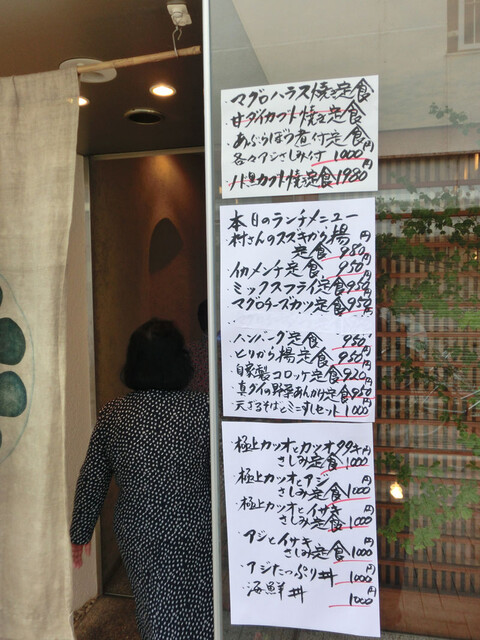 マグロハラス焼き定食
甘ダイカブト焼き定食
あぶらぼう煮付定食
各々アジさしみ付 1000円
カブト焼き定食 1980円
本日のランチメニュー
村さんのスズキから揚
定食 980円
イカメンチ定食 950円
ミックスフライ定食 950円
マグロチーズカツ定食 950円
ハンバーグ定食 950円
とりから揚定食 950円
自家製コロッケ定食 920円
真ダイの野菜あんかけ定食 950円
天ざるそばとミニすしセット 1000円
極上カツオとカツオタタキ
さしみ定食 1000円
極上カツオとアジ
さしみ定食 1000円
極上カツオとイサキ
さしみ定食 1000円
アジとイサキ
さしみ定食 1000円
アジたっぷり丼 1000円
海鮮丼 1000円